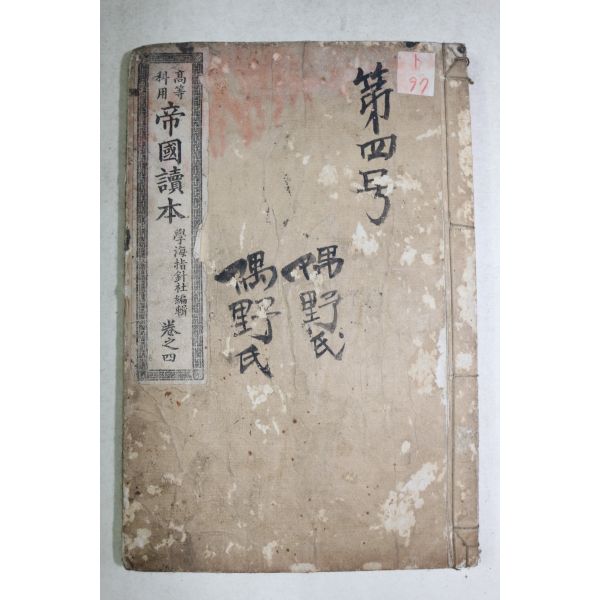 ト
97
第四号
隅野氏
隅野氏
高等
科用
帝國讀本
學海指針社編輯
卷之四